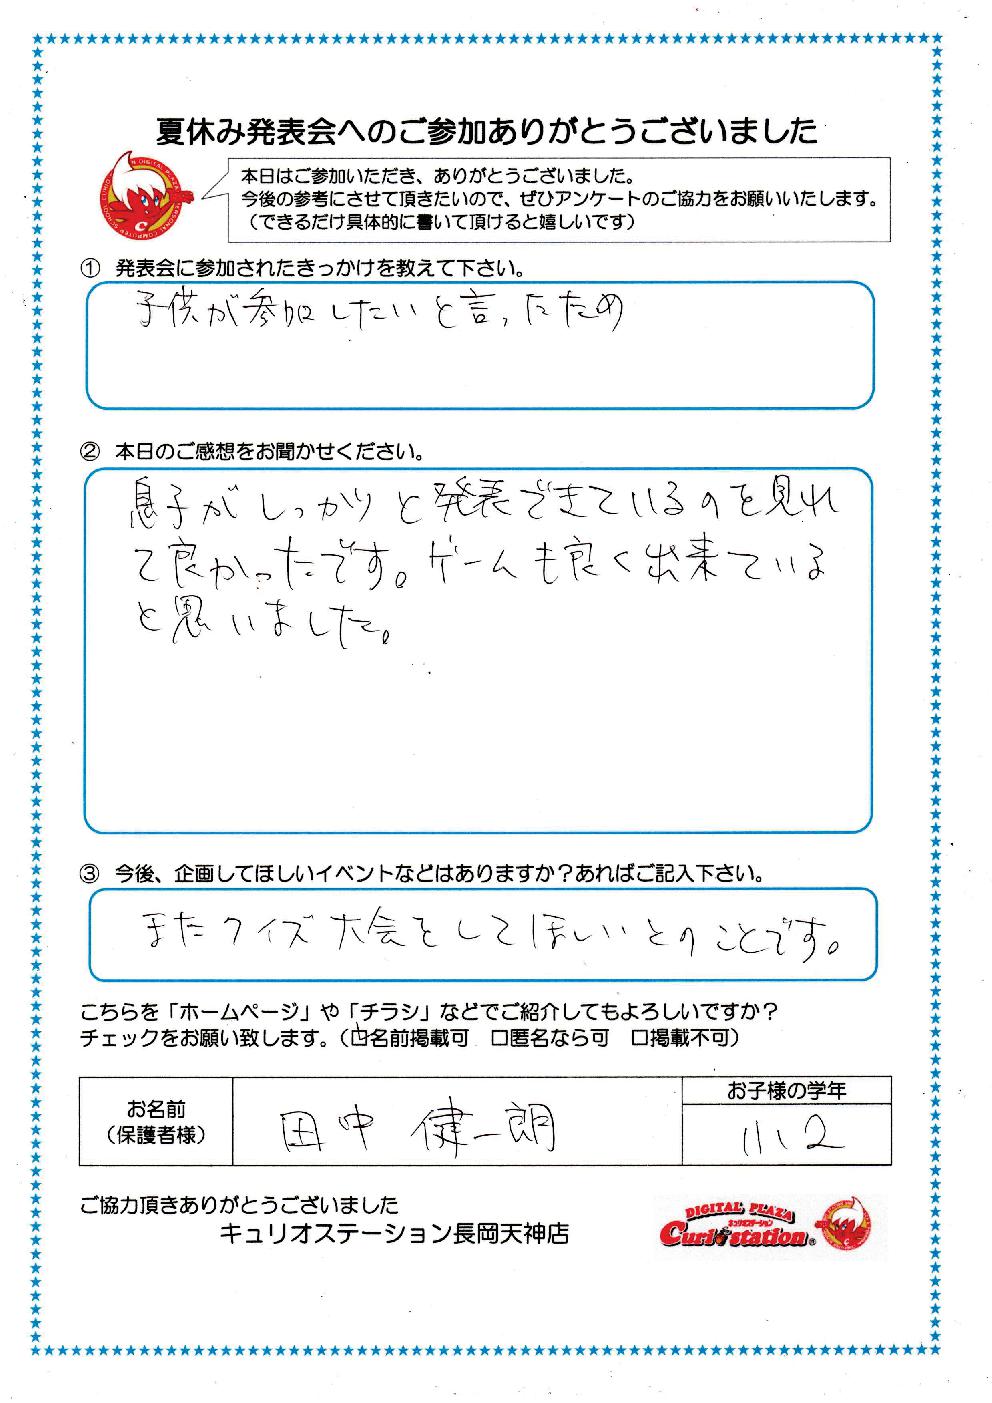 夏休み発表会へのご参加ありがとうございました
本日はご参加いただき、ありがとうございました。
今後の参考にさせて頂きたいので、ぜひアンケートのご協力をお願いいたします。
（できるだけ具体的に書いて頂けると嬉しいです）
① 発表会に参加されたきっかけを教えて下さい。
子供が参加したいと言ったため
② 本日のご感想をお聞かせください。
息子がしっかりと発表できているのを見れ
て良かったです。ゲームも良く出来ている
と思いました。
③ 今後、企画してほしいイベントなどはありますか？あればご記入下さい。
またクイズ大会をしてほしいとのことです。
こちらを「ホームページ」や「チラシ」などでご紹介してもよろしいですか？
チェックをお願い致します。（☑名前掲載可 □匿名なら可 □掲載不可）
お名前
（保護者様）
田中 健一朗
お子様の学年
小2
ご協力頂きありがとうございました
キュリオステーション長岡天神店
DIGITAL PLAZA
キュリオステーション
Curiostation®